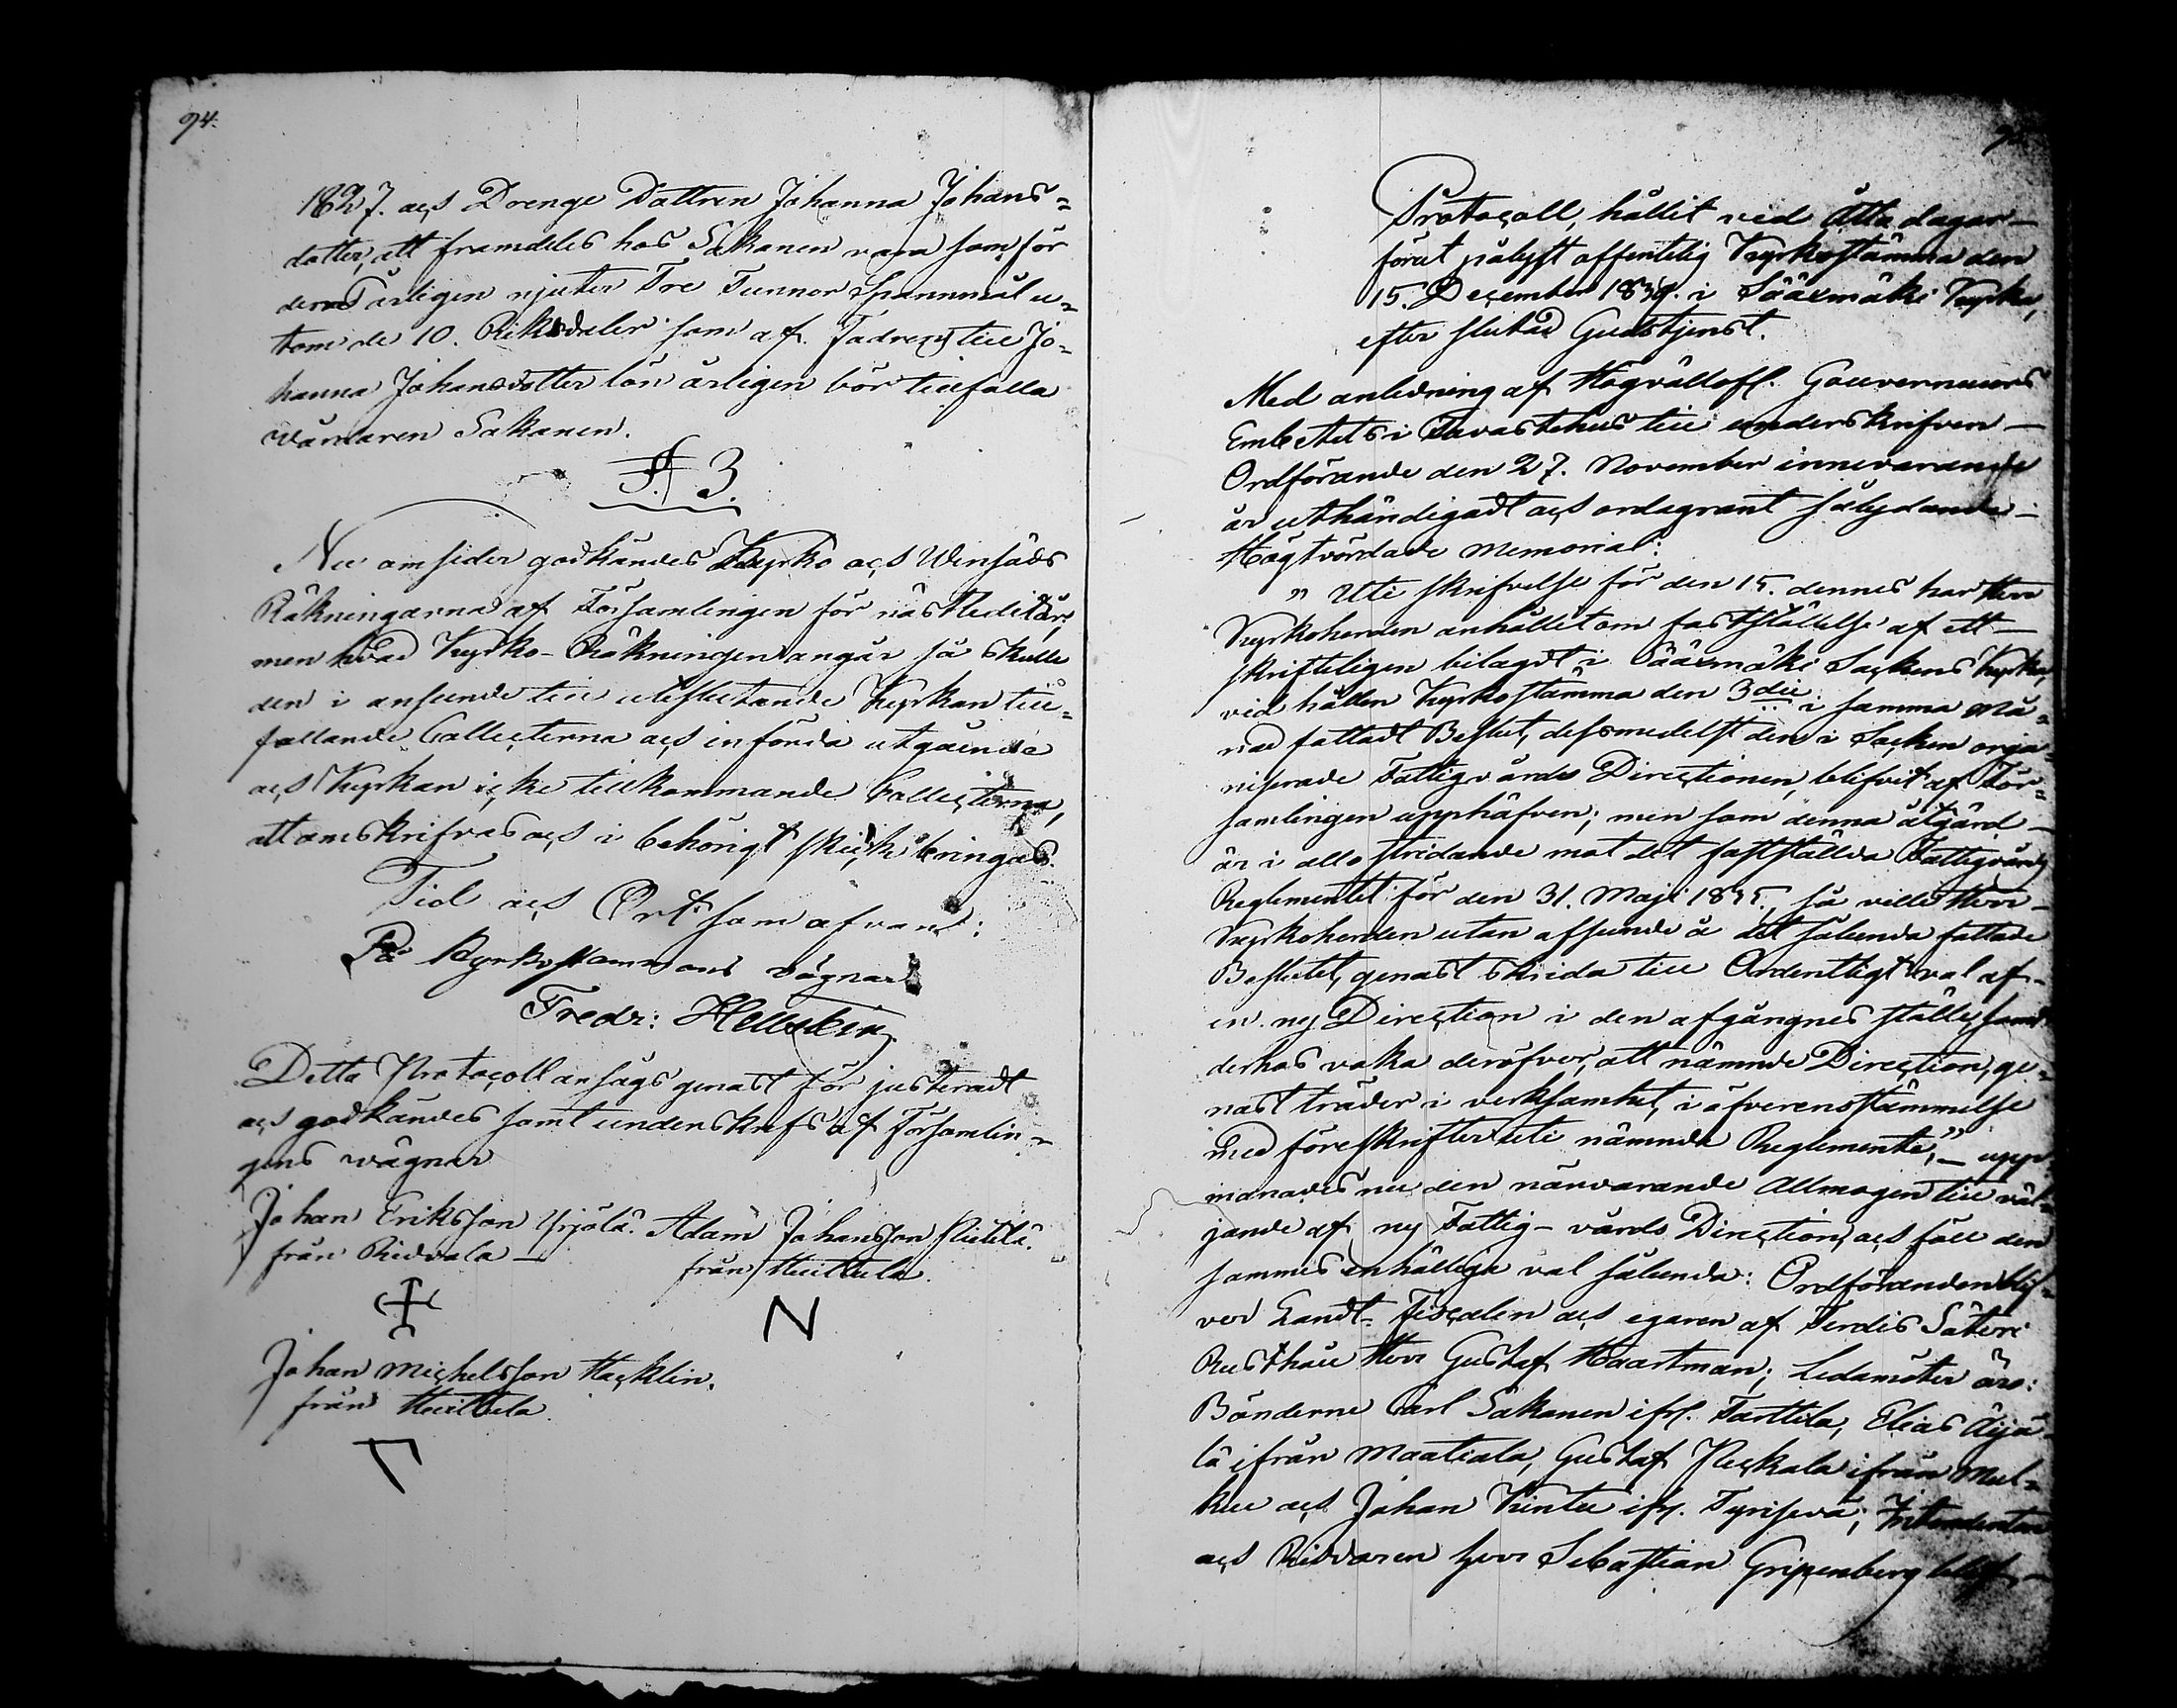 94.
1827. och Drenge Dottren Johanna Johans=
dotter, att framdeles hos Sakanen vara som för
dera årligen njuter Tre Tunnor Spannmål u=
tom de 10. Riksdaler som af Fadren till Jo=
hanna Johansdotter lön årligen bör tillfalla
vårdaren Sakanen.
§ 3.
Nu omsider godkändes Kyrko och Winsäds
Räkningarna af Församlingen för nästledit år,
men hvad Kyrko-Räkningen angår så skulle
den i anseende till uteslutande Kyrkan till=
fallande Collecterna och införda utgående
och Kyrkan icke tillkommande Collecterna,
att omskrifvas och i behörigt skick bringas.
Tid och Ort som ofvan:
På Kyrkostämmans vägnar
Fredr: Hellsten
Detta Protocoll ansågs genast för justeradt
och godkändes samt underskrefs af Församlin=
gens wägnar
Johan Eriksson Yrjölä. Adam Johansson Pietilä.
från Ridvala — från Huittula.
N
Johan Michelsson Hacklin.
från Huittula.
Protocoll, hållit vid Åtta dagar
förut pålyst offentelig Kyrkostämma den
15. December 1839. i Sääxmäki Kyrka,
efter slutad Gudstjenst.
Med anledning af Högvällofl. Gouverneurs
Embetets i Tavastehus till underskrifven
Ordförande den 27. November innevarande
år uthändigadt och ordagrant sålydande
Högtvördade Memorial:
" Uti skrifvelse för den 15. dennes har Herr
Kyrkoherden anhållit om fastställelse af ett
skrifteligen bilagdt i Sääxmäki Sockens Kyrka,
vid hållen Kyrkostämma den 3die i samma Må=
nad fattadt Beslut, dessmedelst den i Socken orga=
niserade Fattigvårds Directionen, blifvit af För=
samlingen upphäfven; men som denna åtgärd
är i allo stridande mot det fastställda Fattigvårds
Reglementet för den 31. Maji 1835., så ville Herr
Kyrkoherden utan afseende å det sålunda fattade
Beslutet, genast skrida till Ordentligt val af
en ny Direction i den afgångnes ställe, samt
derhos vaka deröfver, att nämnde Direction, ge=
nast träder i verksamhet, i öfverensstämmelse
med föreskrifter uti nämnda Reglemente," — upp
manades nu den närvarande Allmogen till väl=
jande af ny Fattig-vårds Direction, och föll den
sammes enhälliga val sålunda: Ordföranden blif=
ver Landt-Fiscalen och egaren af Terdis Säteri
Rusthåll Herr Gustaf Haartman; Ledamöter äro:
Bönderne Carl Sakanen ifrl. Tarttila, Elias Äijä
lä ifrån Maatiala, Gustaf Pluckala ifrån Mul=
kee och Johan Kintu ifr. Tyrisevä; Intendenten
och Riddaren herr Sebastian Gripenberg blef